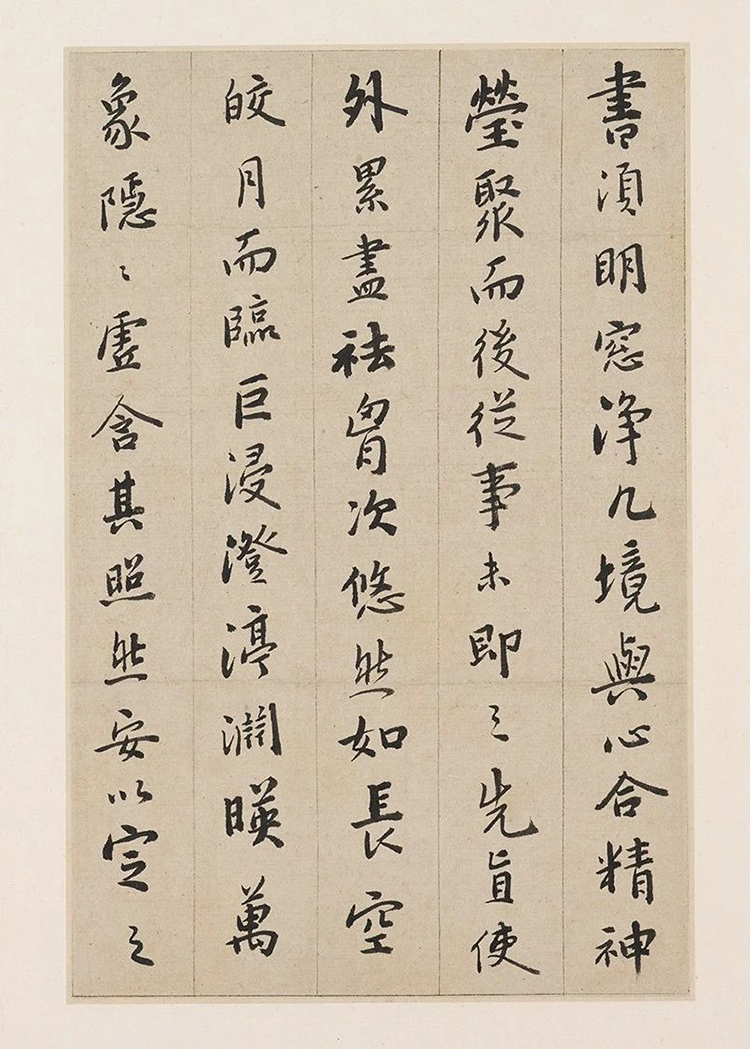 書須明窓浄几境與心合精神
瑩聚而後従事未即之先冝使
外累盡祛胷次悠然如長空
皎月而臨巨浸澄渟濶暎萬
象隱〻虛含其照然安以定之